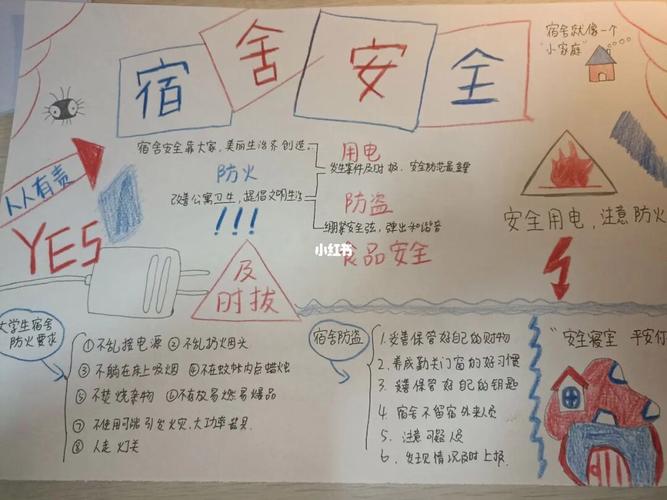 宿舍安全
宿舍就像一个
"小家庭"
人人有责
YES
宿舍安全靠大家，美丽生活齐创造。
防火
改善公寓卫生，提倡文明生活
!!!
用电
发生案件及时报，安全防范最重要
防盗
绷紧安全弦，弹出和谐音
食品安全
小红书
及
时拔
安全用电，注意防火
大学生宿舍
防火要求
①不乱接电源 ②不乱扔烟头
③不躺在床上吸烟 ④不在蚊帐内点蜡烛
⑤不焚烧杂物 ⑥不存放易燃易爆品
⑦不使用可能引发火灾，大功率器具
⑧人走灯关
宿舍防盗
1.妥善保管好自己的财物
2.养成勤关门窗的好习惯
3.保管好自己的钥匙
4.宿舍不留宿外来人员
5.注意可疑人员
6.发现情况及时上报.
"安全寝室 平安